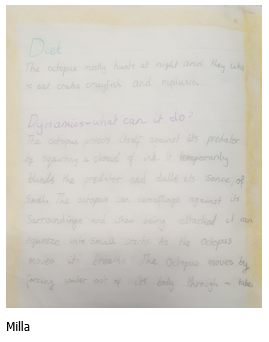 Diet
The octopus mostly hunts at night and they like
to eat crabs crayfish and molluscs.
Dynamics-what can it do?
The octopus defends itself against its predator
by squirting a cloud of ink it temporarily
blinds the predator and dulls its sence of
smell. The octopus can camouflage against its
surroundings and when being attacked it can
squeeze into small cracks. As the octopus
moves it breaths. The octopus moves by
forcing water out of its body through a tube
Milla